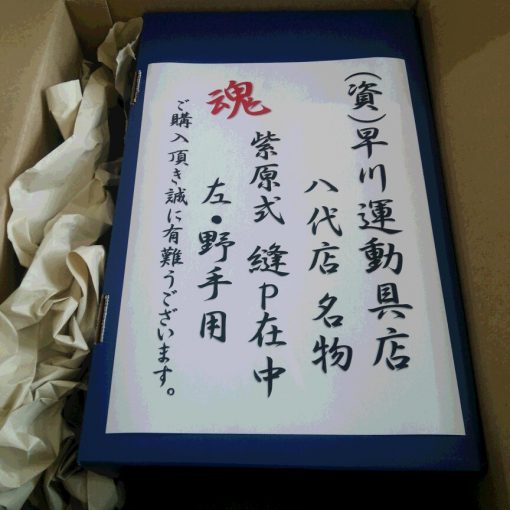 (資)早川運動具店
八代店 名物
紫原式 縫P在中
左・野手用
魂
ご購入頂き誠に有難うございます。